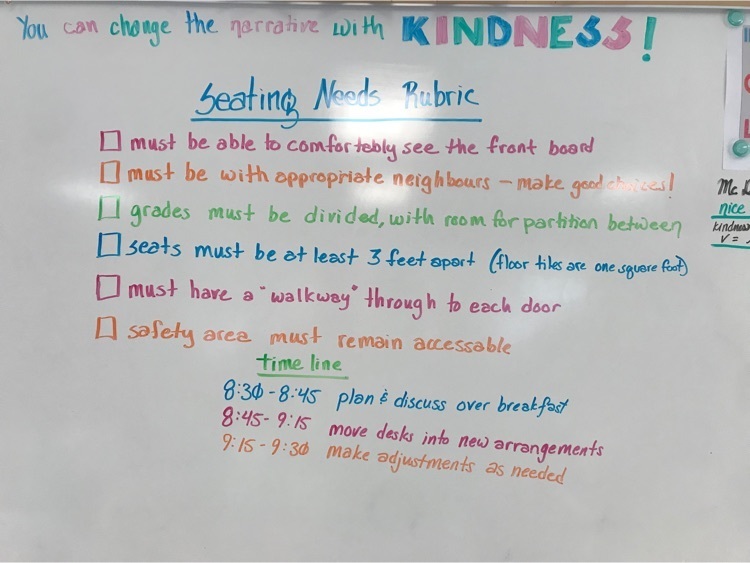 You can change the narrative with KINDNESS!
Seating Needs Rubric
must be able to comfortably see the front board
must be with appropriate neighbours – make good choices!
grades must be divided, with room for partition between
seats must be at least 3 feet apart (floor tiles are one square foot)
must have a "walkway" through to each door
safety area must remain accessable
time line
8:30 - 8:45 plan & discuss over breakfast
8:45 - 9:15 move desks into new arrangements
9:15 - 9:30 make adjustments as needed
nice
kindness
V =